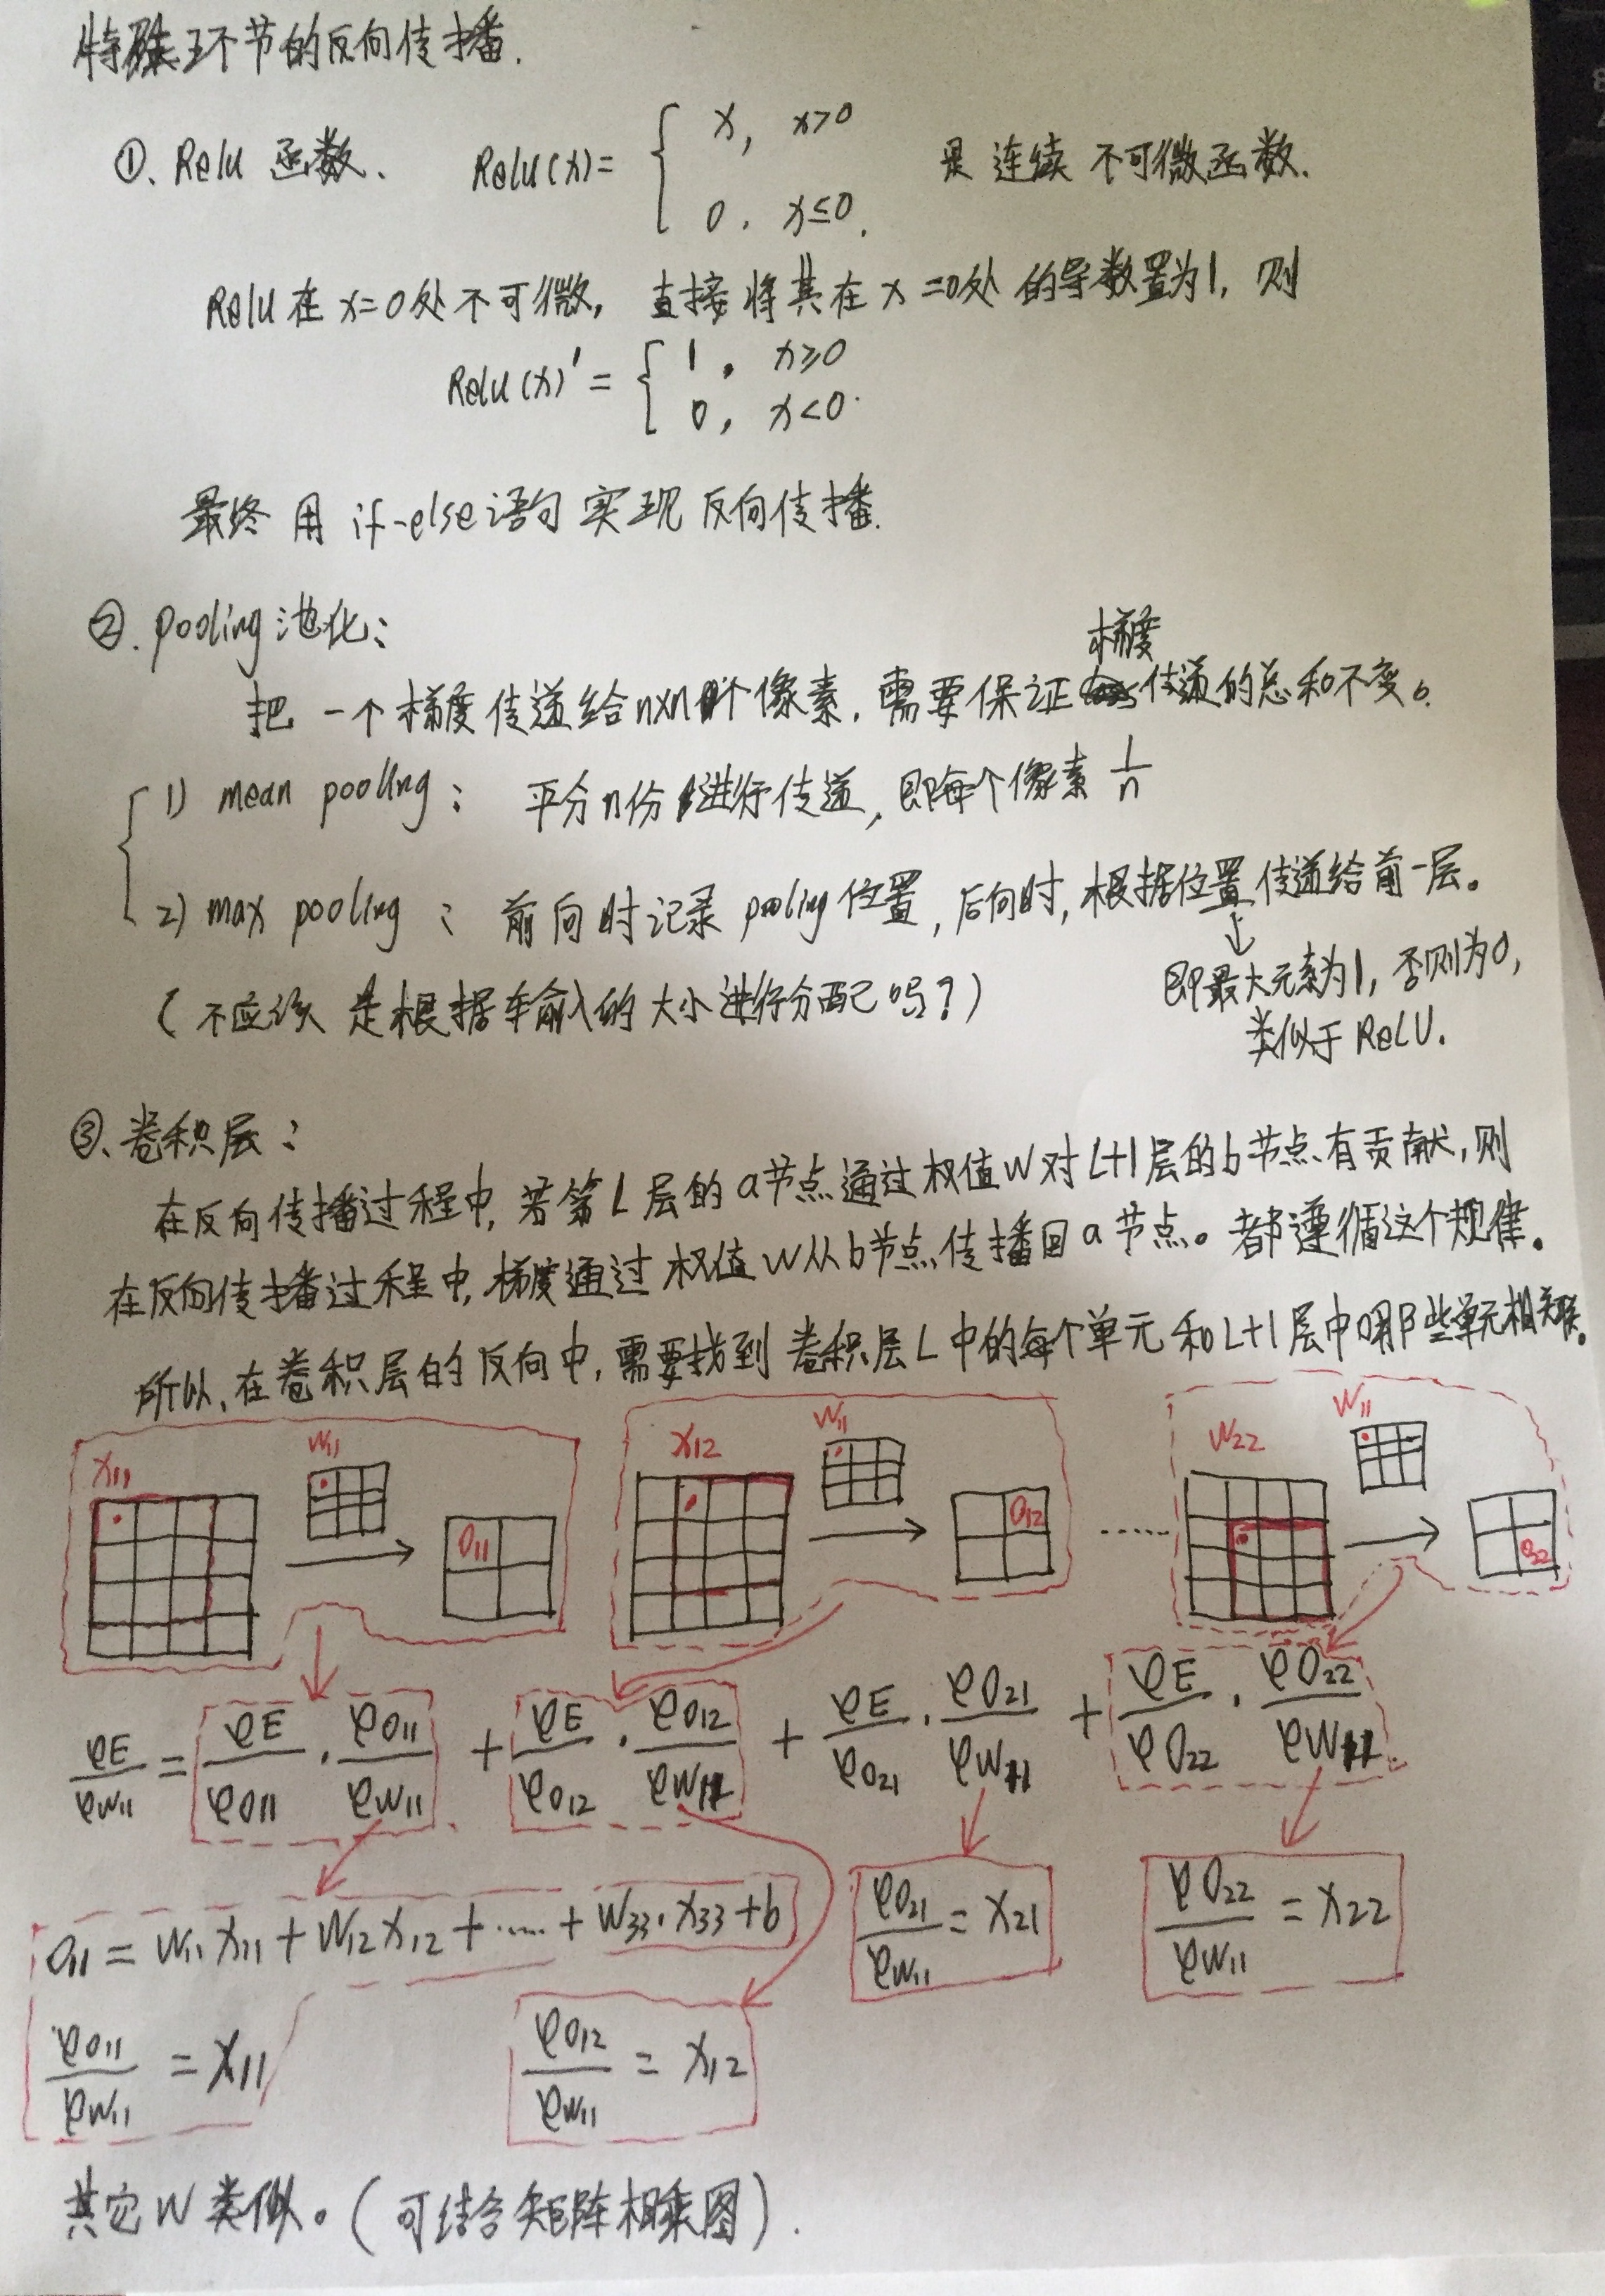 特殊环节的反向传播.
①. Relu 函数、 Relu(x)= { x, x>0 是 连续 不可微函数.
0, x≤0.
Relu 在 x=0处 不可微, 直接将其在 x=0处 的导数置为1, 则
Relu(x)' = { 1, x≥0
0, x<0.
最终 用 if-else语句 实现 反向传播.
②. pooling 池化:
梯度
把 一个 梯度 传递 给 n×n个像素, 需要保证 传递的总和不变。
1) mean pooling: 平分n份进行传递, 即每个像素 1/n
2) max pooling : 前向时记录 pooling 位置, 后向时, 根据位置 传递给前一层。
↓
即最大元素为1, 否则为0,
(不应该 是根据输入的大小进行分配吗?)
类似于 ReLU.
③、卷积层:
在反向传播过程中, 若第L层的a节点通过权值W对L+1层的b节点有贡献, 则
在反向传播过程中, 梯度通过权值W从b节点传播回a节点。都遵循这个规律.
所以, 在卷积层的反向中, 需要找到卷积层L中的每个单元和L+1层中哪些单元相关联。
X11 W11 O11 X12 W11 O12 …… W22 W11 O22
∂E/∂W11 = ∂E/∂O11 · ∂O11/∂W11 + ∂E/∂O12 · ∂O12/∂W11 + ∂E/∂O21 · ∂O21/∂W11 + ∂E/∂O22 · ∂O22/∂W11
O11 = W11 X11 + W12 X12 + …… + W33·X33 + b
∂O21/∂W11 = X21
∂O22/∂W11 = X22
∂O11/∂W11 = X11
∂O12/∂W11 = X12
其它W类似。(可结合矩阵相乘图).